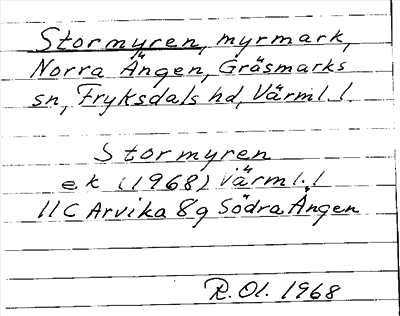 Stormyren, myrmark,
Norra Ängen, Gräsmarks
sn, Fryksdals hd, Värml. l.
Stormyren
ek (1968) Värml. l
11C Arvika 8g Södra Ängen
R. Ol. 1968